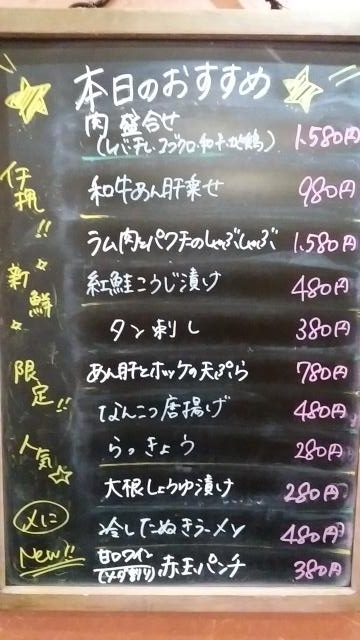 本日のおすすめ
肉 盛合せ
(レバテレ・コブクロ・和牛・地鶏) 1.580円
イチ押!!
和牛あん肝乗せ 980円
ラム肉とパクチのしゃぶしゃぶ 1.580円
新鮮
紅鮭こうじ漬け 480円
タン刺し 380円
限定!!
あん肝とホッケの天ぷら 780円
なんこつ唐揚げ 480円
人気
らっきょう 280円
大根しょうゆ漬け 280円
〆に
冷したぬきラーメン 480円
New!!
甘口ワイン
(ソーダ割り) 赤玉パンチ 380円